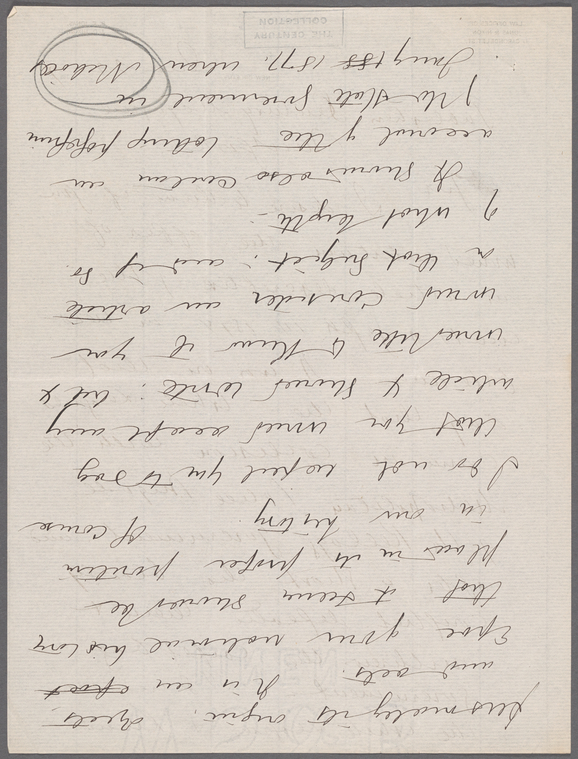 personality its origin. effects
and acts. It is an epoch
Epoc of our national history
that I think should be
placed in its proper position
in our history Of course
I do not expect you to say
that you would accept any
article I should write: but I
would like to know if you
would consider an article
on that subject: and if so
of what length.
It should also contain an
account of the
of the State Government in
Jany 188 1877. when Nichols
THE CENTURY
COLLECTION